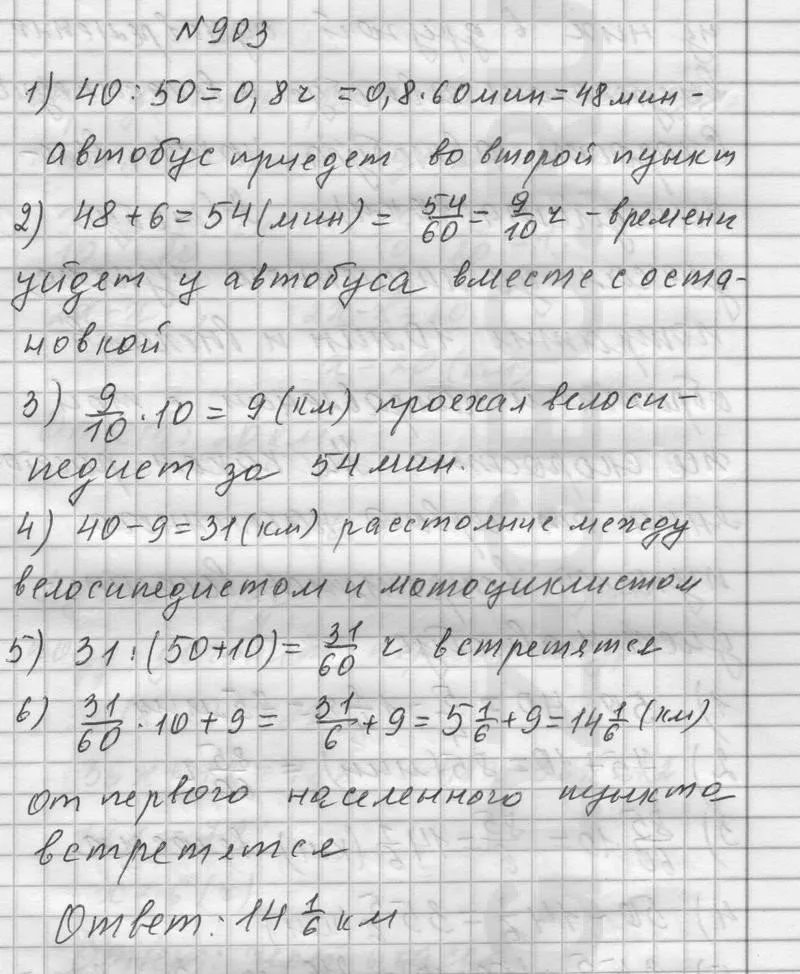 №903
1) 40 : 50 = 0,8 ч = 0,8 · 60 мин = 48 мин -
автобус приедет во второй пункт
2) 48 + 6 = 54 (мин) = 54/60 = 9/10 ч - времени
уйдет у автобуса вместе с оста-
новкой
3) 9/10 · 10 = 9 (км) проехал велоси-
педист за 54 мин.
4) 40 - 9 = 31 (км) расстояние между
велосипедистом и мотоциклистом
5) 31 : (50 + 10) = 31/60 ч встретятся
6) 31/60 · 10 + 9 = 31/6 + 9 = 5 1/6 + 9 = 14 1/6 (км)
от первого населенного пункта
встретятся
Ответ: 14 1/6 км